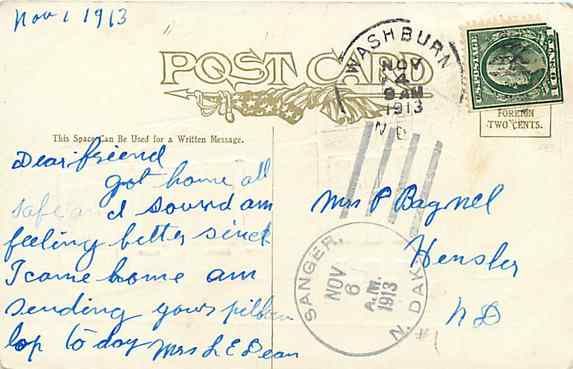 Nov 1 1913
POST CARD
WASHBURN
NOV
4
9 AM
1913
N.D.
U.S. POSTAGE
FOREIGN
TWO CENTS.
This Space Can Be Used for a Written Message.
Dear friend
got home all
safe and sound am
feeling better since
I came home am
sending your pillow
top to day Mrs L E Dean
Mrs P Bagnel
Hensler
N D
#1
SANGER,
NOV
6
A.M.
1913
N. DAK.